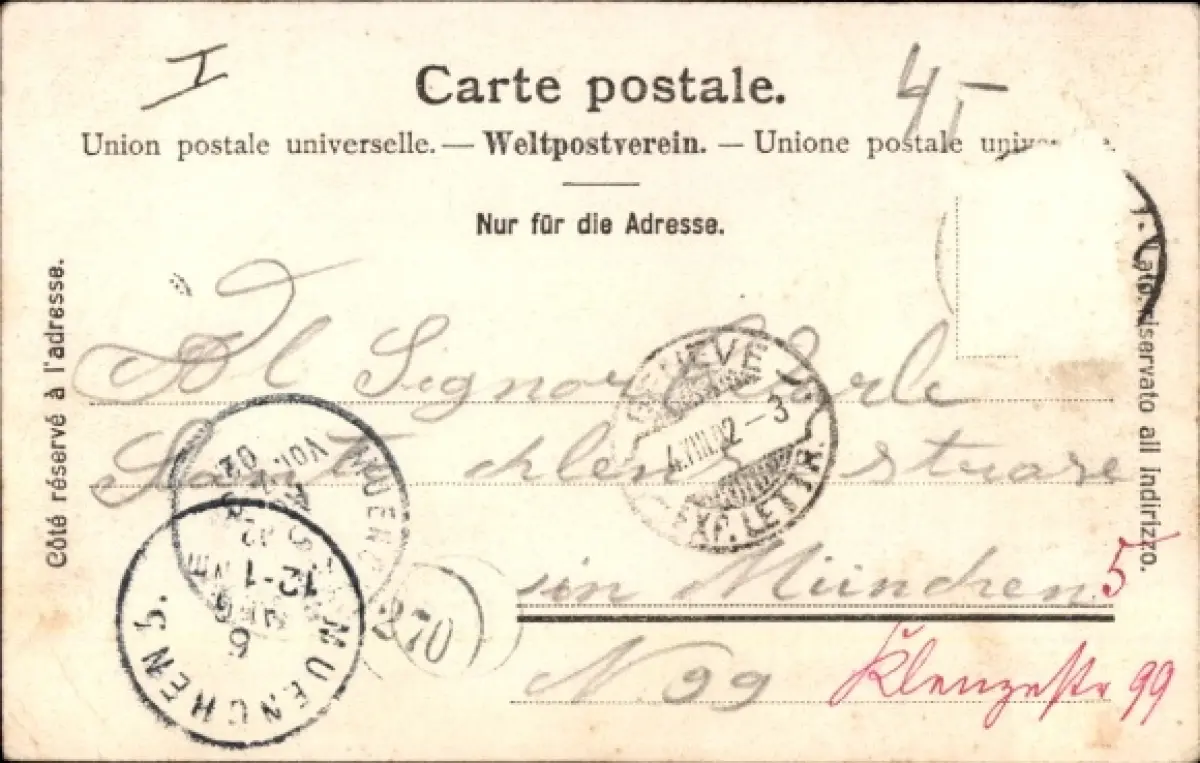 I
4,-
Carte postale.
Union postale universelle.— Weltpostverein. — Unione postale
Nur für die Adresse.
Côté réservé à l'adresse.
Lato riservato all Indirizzo.
Al Signor Carle
strase
in München. 5
N. 99 Klenzestr 99
GENEVE
4.VIII.02-3
EXP. LETTR.
MUENCHEN 5.
6
12-1
270